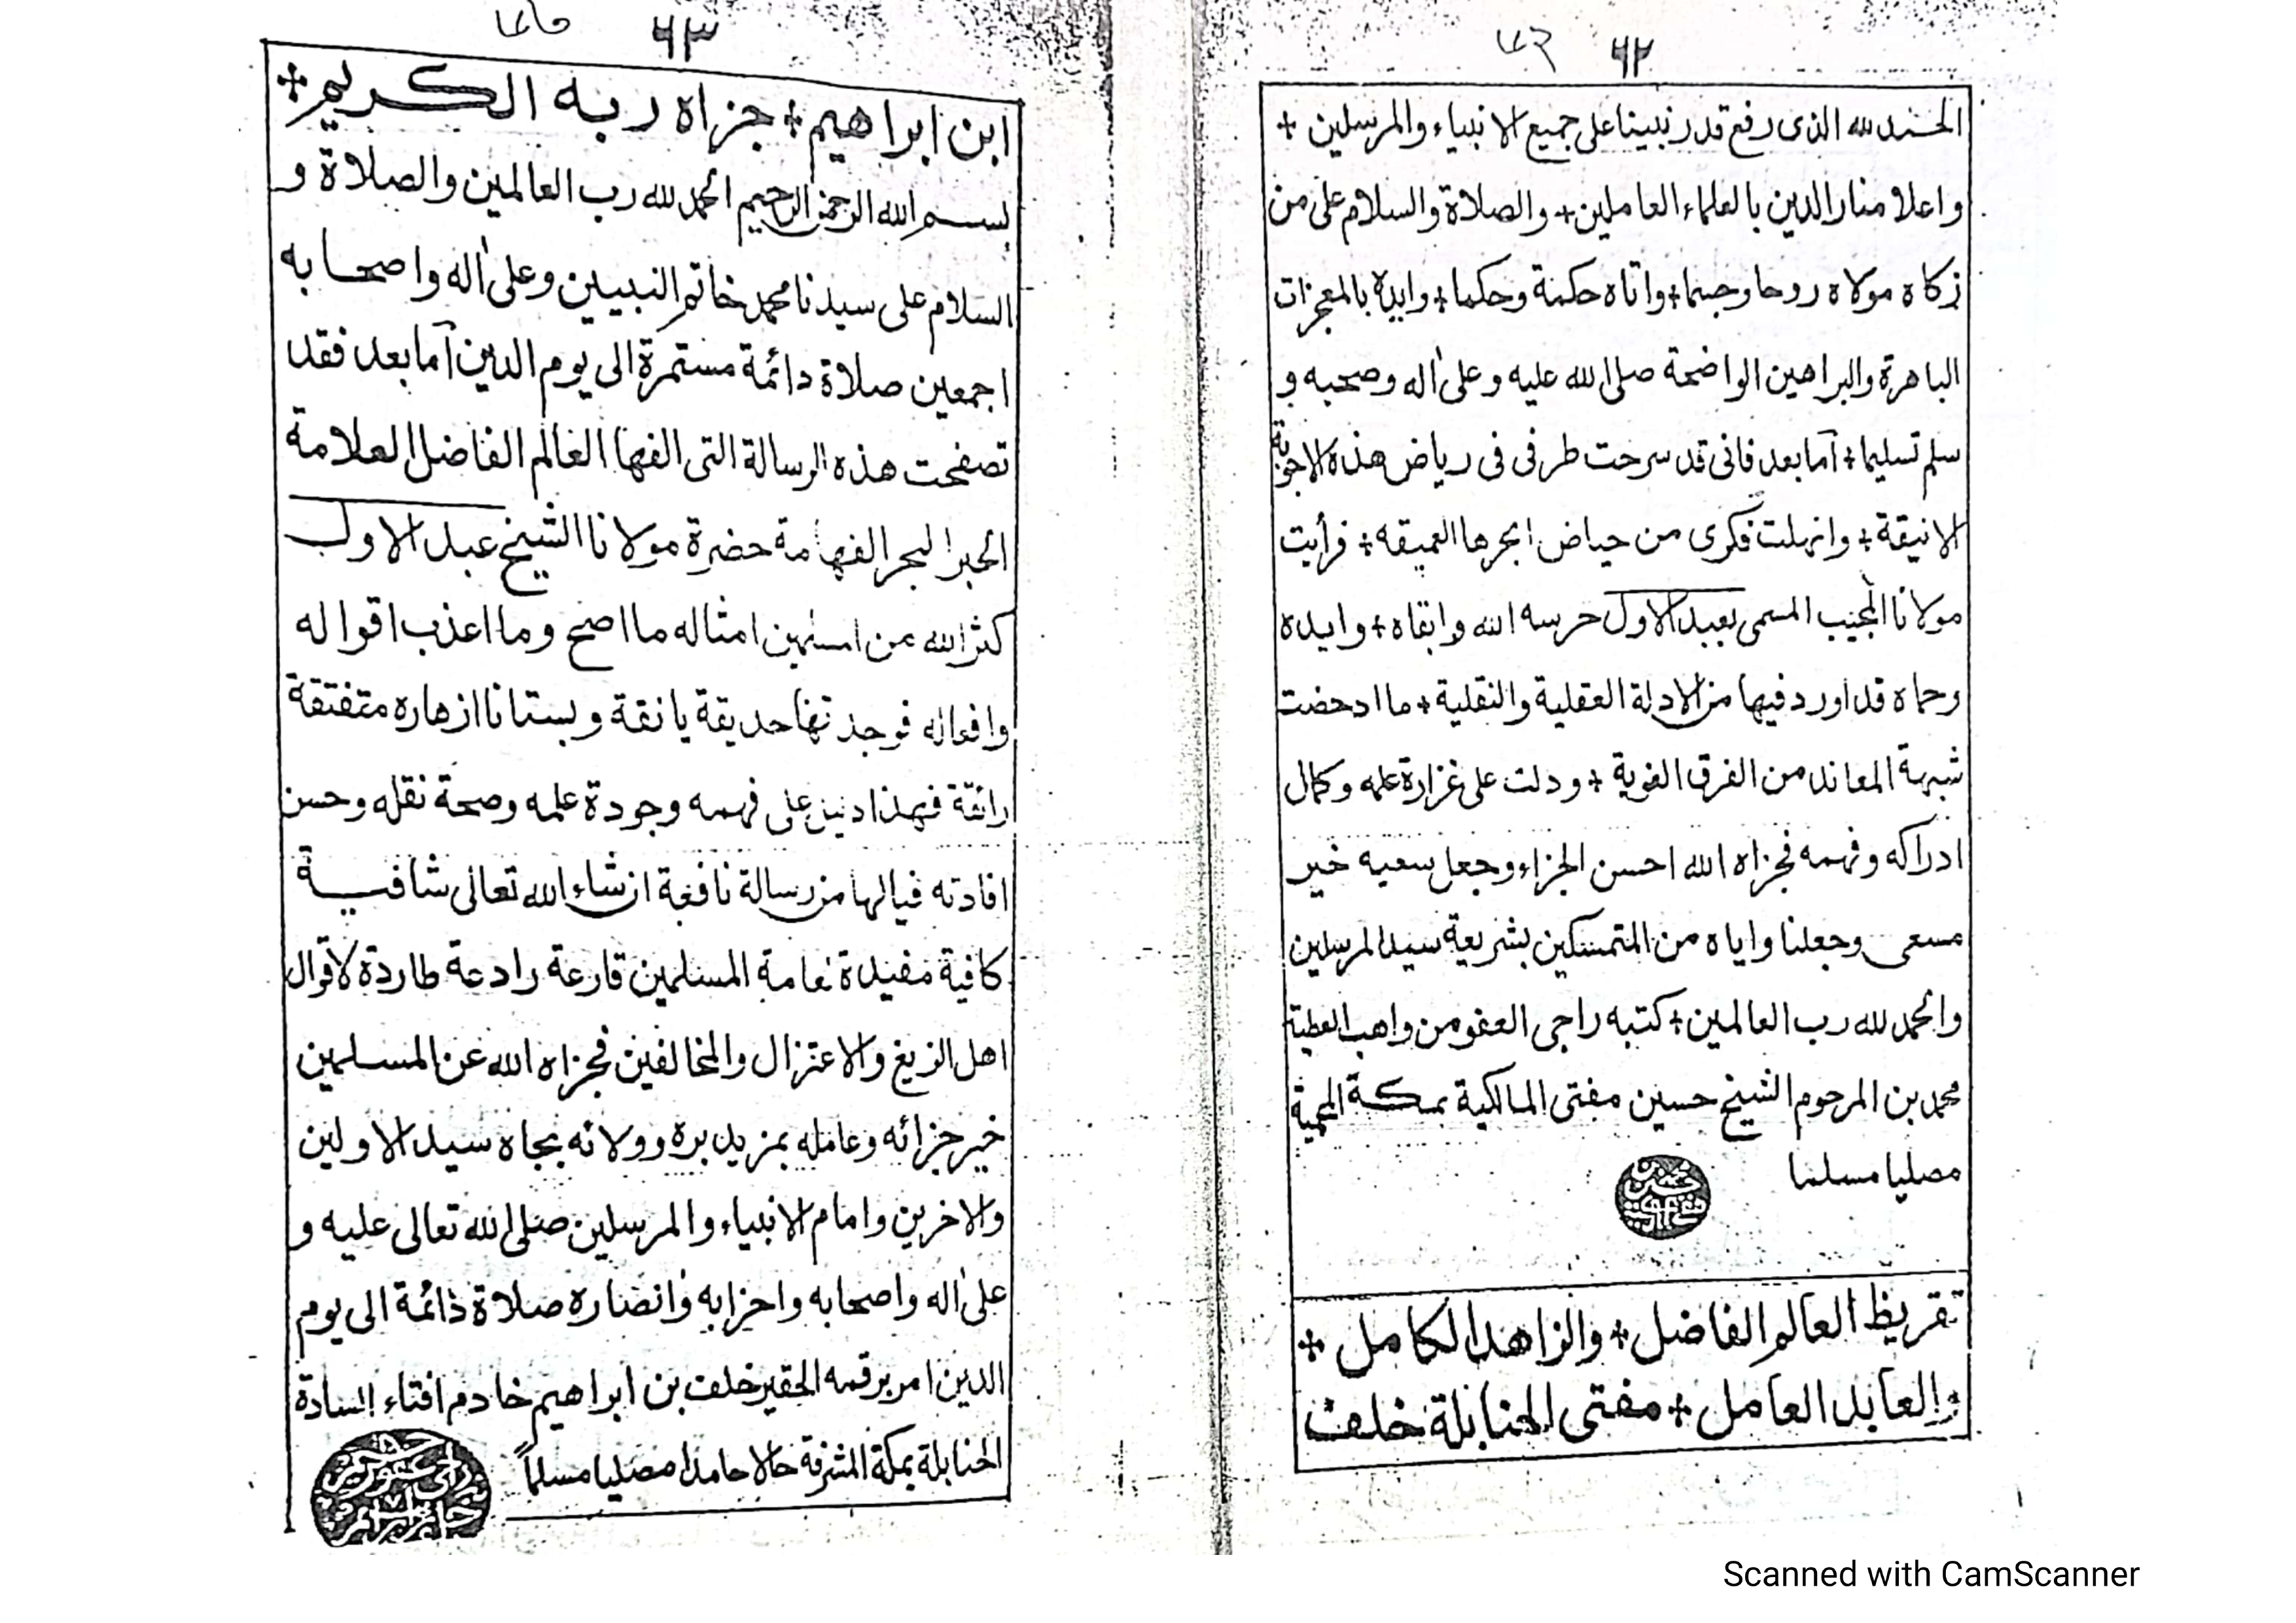 ٦٢
الحمد لله الذى رفع قدر نبينا على جميع الانبياء والمرسلين +
واعلا منار الدين بالعلماء العاملين + والصلاة والسلام على من
زكاه مولاه روحا وجسما + واتاه حكمة وحكما + وايده بالمعجزات
الباهرة والبراهين الواضحة صلى الله عليه وعلى اله وصحبه و
سلم تسليما + اما بعد فانى قد سرحت طرفى فى رياض هذه الاجوبة
الانيقة + وانهلت فكرى من حياض ابحرها العميقه + فرأيت
مولانا المجيب المسمى بعبد الاول حرسه الله وابقاه + وايده
وحماه قد اورد فيها من الادلة العقلية والنقلية + ما ادحضت
شبهة المعاند من الفرق الغوية + ودلت على غزارة علمه وكمال
ادراكه وفهمه فجزاه الله احسن الجزاء وجعل سعيه خير
مسعى وجعلنا واياه من المتمسكين بشريعة سيد المرسلين
والحمد لله رب العالمين + كتبه راجى العفو من واهب العطية
محمد بن المرحوم الشيخ حسين مفتى المالكية بمكة المحمية
مصليا مسلما
تقريظ العالم الفاضل + والزاهد الكامل +
والعابد العامل + مفتى الحنابلة خلف
٦٣
ابن ابراهيم + جزاه ربه الكريم +
بسم الله الرحمن الرحيم الحمد لله رب العالمين والصلاة و
السلام على سيدنا محمد خاتم النبيين وعلى اله واصحابه
اجمعين صلاة دائمة مستمرة الى يوم الدين اما بعد فقد
تصفحت هذه الرسالة التى الفها العالم الفاضل العلامة
الحبر البحر الفهامة حضرة مولانا الشيخ عبد الاول
كثر الله من المسلمين امثاله ما اصح وما اعذب اقواله
وافعاله فوجدتها حديقة يانقة وبستانا ازهاره متفتقة
رائقة فهذا دليل على فهمه وجودة علمه وصحة نقله وحسن
افادته فيالها من رسالة نافعة ان شاء الله تعالى شافية
كافية مفيدة لعامة المسلمين قارعة رادعة طاردة لاقوال
اهل الزيغ والاعتزال والمخالفين فجزاه الله عن المسلمين
خير جزائه وعامله بمزيد بره وولائه بجاه سيد الاولين
والاخرين وامام الانبياء والمرسلين صلى الله تعالى عليه و
على اله واصحابه واحزابه وانصاره صلاة دائمة الى يوم
الدين امر برقمه الحقير خلف بن ابراهيم خادم افتاء السادة
الحنابلة بمكة المشرفة حالا حامدا مصليا مسلماً
Scanned with CamScanner